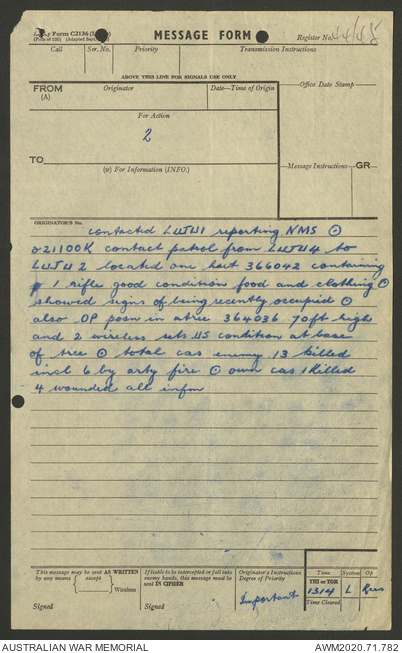 Army Form C2136 (Large)
(Pads of 100) (Adapted Sept.
MESSAGE FORM
Register No. 44/48
Call Ser. No. Priority Transmission Instructions
ABOVE THIS LINE FOR SIGNALS USE ONLY.
FROM Originator Date—Time of Origin Office Date Stamp
(A)
For Action
2
TO
(W) For Information (INFO.)
Message Instructions GR
ORIGINATOR'S No.
contacted LWJW1 reporting NMS ⊙
021100K contact patrol from LWJW4 to
LWJW2 located one hut 366042 containing
1 rifle good condition food and clothing ⊙
showed signs of being recently occupied ⊙
also OP posn in a tree 364036 70ft high
and 2 wireless sets U/S condition at base
of tree ⊙ total cas enemy 13 killed
incl 6 by arty fire ⊙ own cas 1 killed
4 wounded all infm
This message may be sent AS WRITTEN by any means except Wireless
Signed
If liable to be intercepted or fall into enemy hands, this message must be sent IN CIPHER
Signed
Originator's Instructions
Degree of Priority
Important
Time System Op
THI or TOR
1314 L Rees
Time Cleared
AUSTRALIAN WAR MEMORIAL
AWM2020.71.782